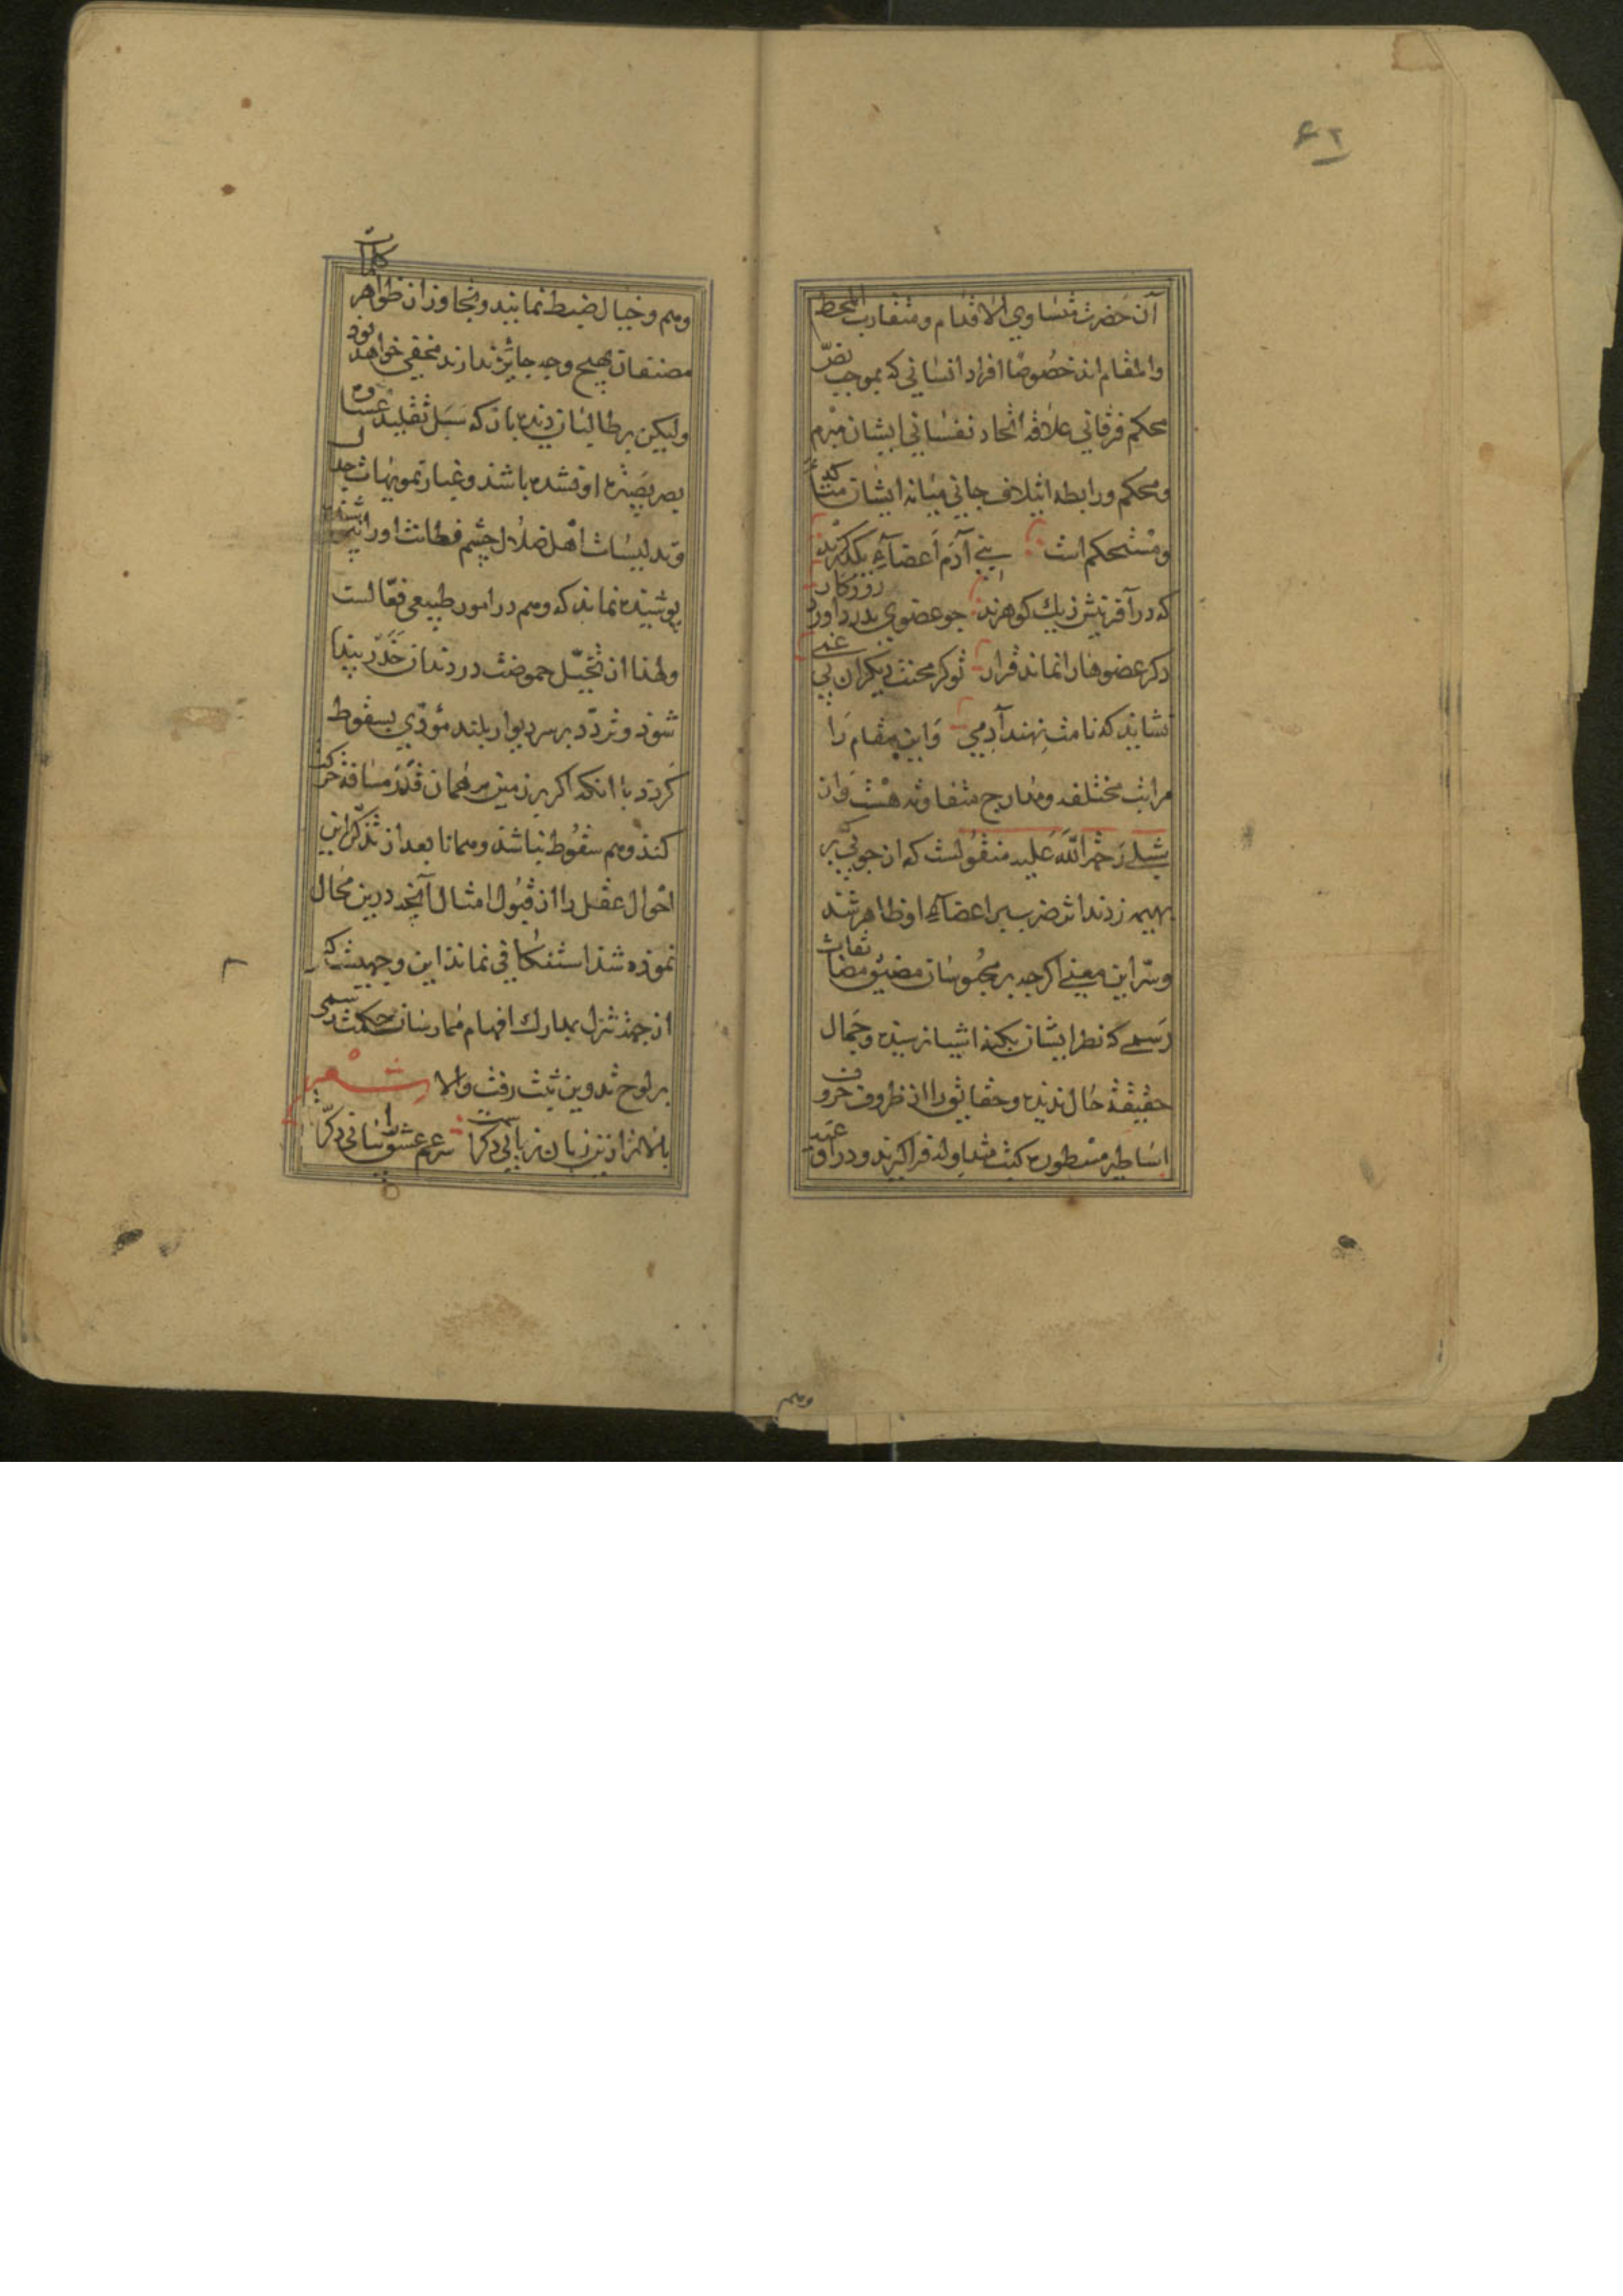 ٤٢
آن حضرت متساوي الاقدام ومتقارب المحط
والمقام اند خصوصًا افراد انساني كه بموجب نصّ
محكم فرقاني علاقه اتحاد نفساني ايشان مبرم
ومحكم ورابطه ايتلاف جاني ميانه ايشان متأكد
ومستحكم است بني آدم اعضآء يكديكرند
كه در آفرينش زيك كوهرند جو عضوي بدرد آورد روزكار
دكر عضوهارا نماند قرار تو كز محنت ديكران بي غمي
نشايد كه نامت نهند آدمي واين مقام را
مراتب مختلفه ومدارج متفاوته هست واز
شبلي رحمة الله عليه منقولست كه از جوبي بر
بهيمه زدند اثر ضرب بر اعضآء او ظاهر شد
وسرّ اين معني اكرجه بر محبوسان مضيق مضايقات
رسمي كه نظر ايشان بكنه اشيا نرسيده وجمال
حقيقة حال نديده وحقايق را از ظروف حروف
اساطير مسطوره كتب متداوله فرا كيرند ودر اوقيه
وهم
وهم وخيال ضبط نمايند وتجاوز از ظواهر كلمات
مصنفان بهيج وجه جايز ندارند مخفي خواهد بود
وليكن بر طالبان ديده باز كه سبل تقليد غشاوه
بصر بصيرة او نشده باشد وغبار تمويهات جدل
وتدليسات اهل ضلال چشم فطانت اورا نپوشيده
پوشيده نماند كه وهم در امور طبيعي فعّالست
ولهذا از تخيّل حموضت در دندان خدر پيدا
شود وتردّد بر سر ديوار بلند مؤدّي بسقوط
كردد با انكه اكر بر زمين بر همان قدر مسافة حركت
كند وهم سقوط نباشد وهمانا بعد از تذكّر اين
احوال عقل را از قبول امثال آنچه درين محال
نموده شد استنكافي نماند اين وجهيست كه
از جهة تنزل بمدارك افهام ممارسان حكمت رسمي
بر لوح تدوين ثبت رفت والا شعر
بالاتر از بن زبان زبانيست دكر سر عشق را نشاني دكر